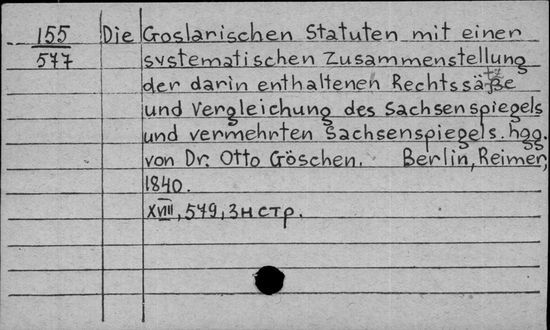 155 Die Goslarischen Statuten mit einer
577 systematischen Zusammenstellung
der darin enthaltenen Rechtssätze
und Vergleichung des Sachsenspiegels
und vermehrten Sachsenspiegels. hgg.
von Dr. Otto Göschen. Berlin, Reimer,
1840.
XVIII, 579, 3 н стр.